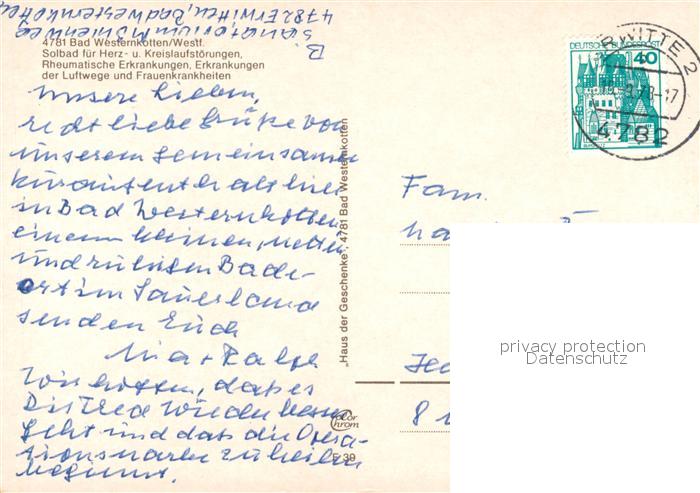 B. Sanatorium Mühlenweg
4782 Erwitten, Bad Westernkotten
4781 Bad Westernkotten/Westf.
Solbad für Herz- u. Kreislaufstörungen,
Rheumatische Erkrankungen, Erkrankungen
der Luftwege und Frauenkrankheiten
Unsere Lieben,
recht liebe Grüße von
unserem gemeinsamen
Kuraufenthalt hier
in Bad Westernkotten
einem kleinen, netten
und ruhigen Bade-
ort im Sauerland
senden Euch
+ Ralph
Wir hoffen, daß es
wieder besser
geht und daß die Opera-
tionsnarbe zu heilen
beginnt.
„Haus der Geschenke“, 4781 Bad Westernkotten
Color
Chrom
E 39
DEUTSCHE BUNDESPOST
40
ERWITTE 2
4782
Fam.
8
privacy protection
Datenschutz